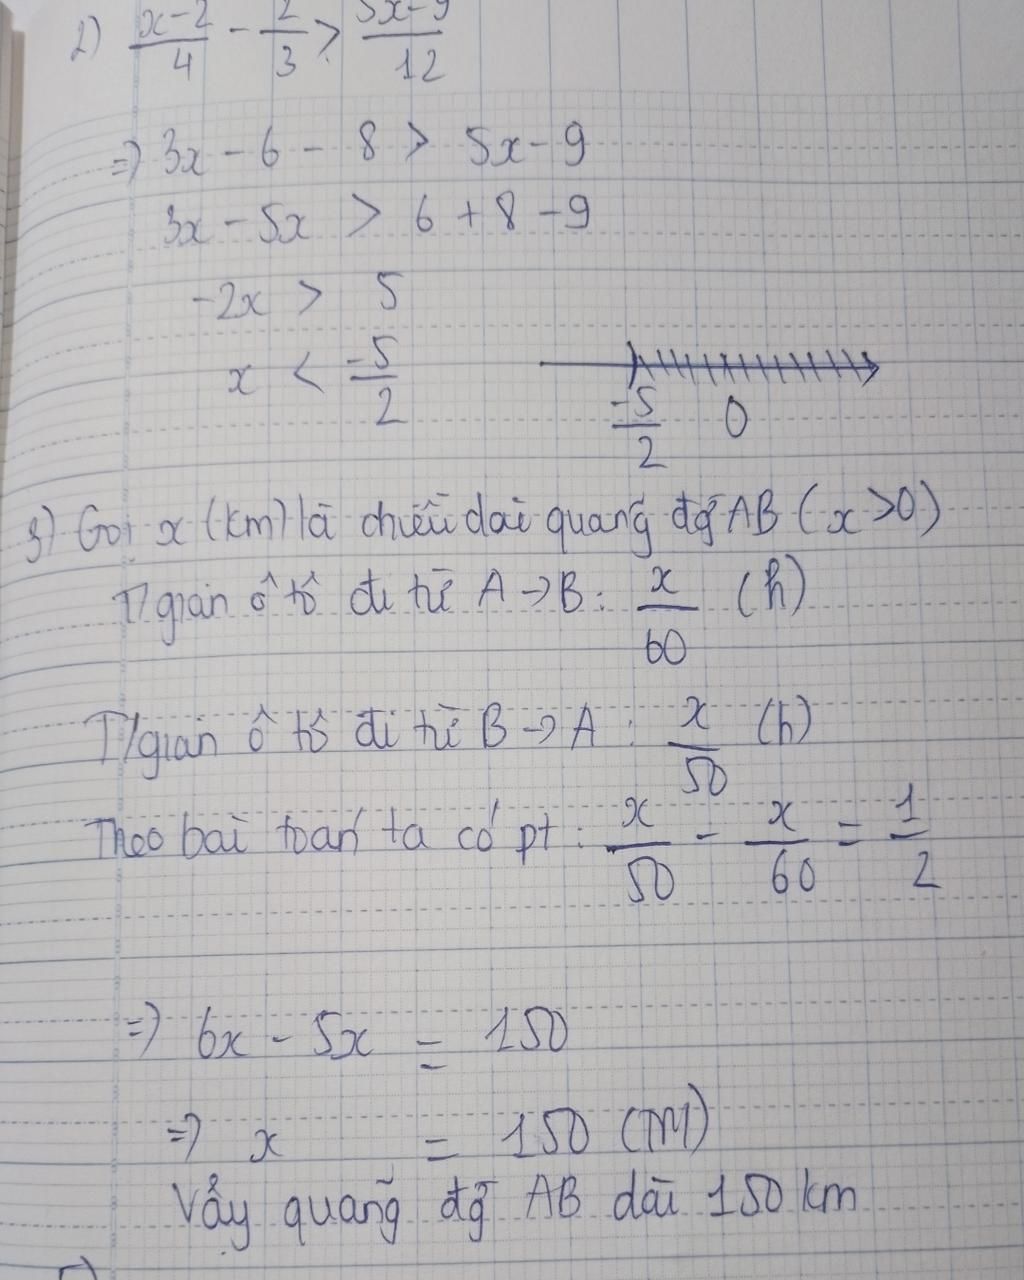 2) x-2/4 - 2/3 > 5x-9/12
=> 3x - 6 - 8 > 5x - 9
3x - 5x > 6 + 8 - 9
-2x > 5
x < -5/2
-5/2 0
3) Gọi x (km) là chiều dài quãng đg̀ AB (x>0)
T/gian ô tô đi từ A->B: x/60 (h)
T/gian ô tô đi từ B->A: x/50 (h)
Theo bài toán ta có pt: x/50 - x/60 = 1/2
=> 6x - 5x = 150
=> x = 150 (TM)
Vậy quãng đg̀ AB dài 150 km